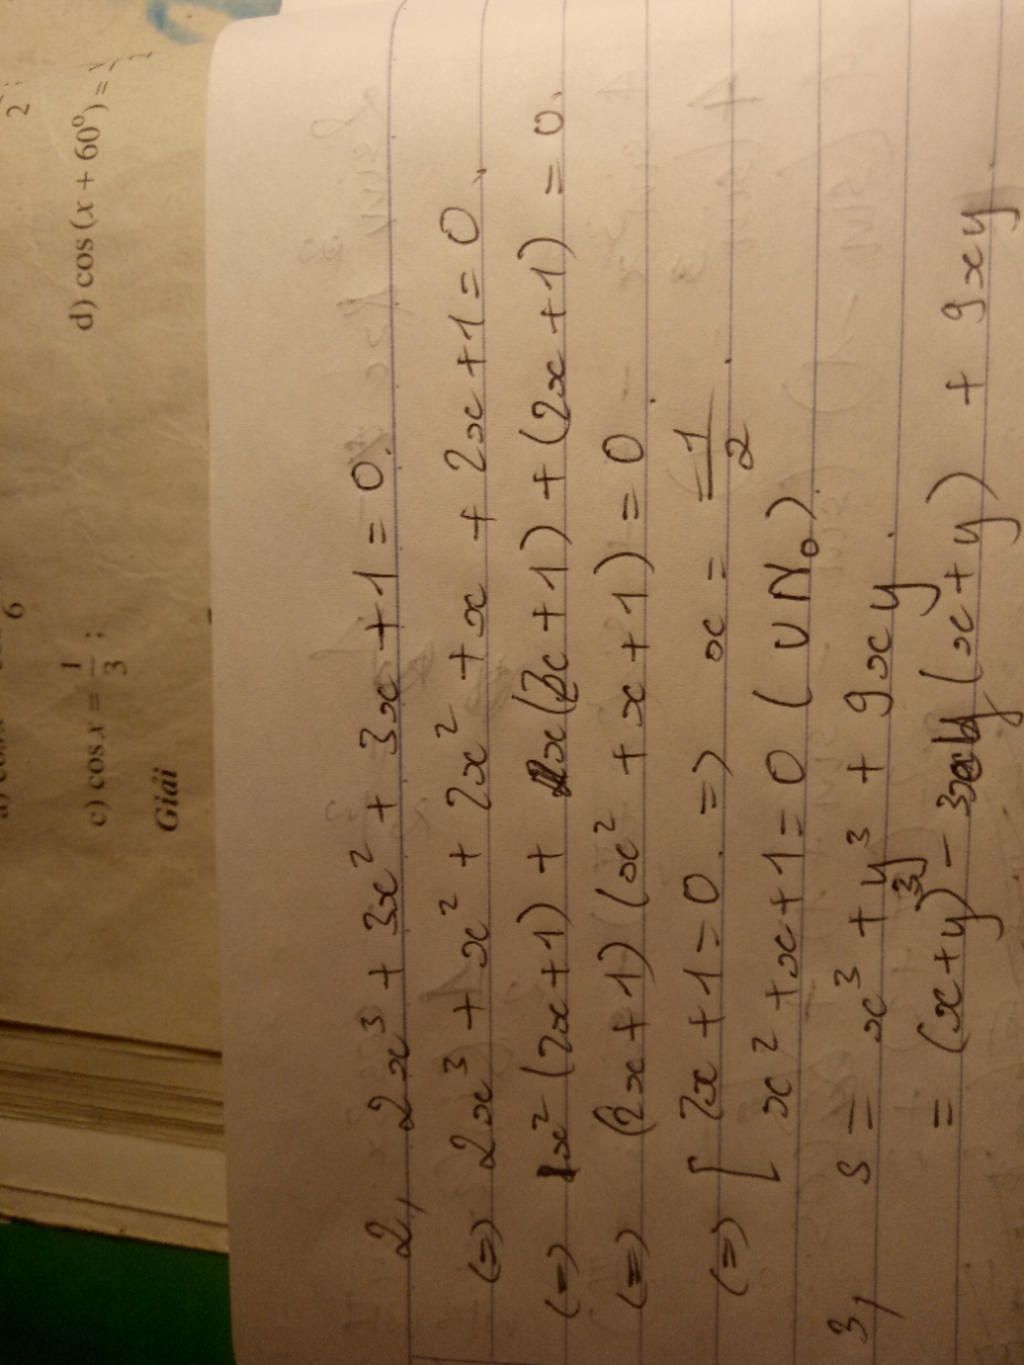 d) cos (x + 60⁰) =
c) cos x = 1/3 ;
Giải
2, 2x³ + 3x² + 3x + 1 = 0.
(=) 2x³ + x² + 2x² + x + 2x + 1 = 0
(=) x² (2x+1) + x(2x+1) + (2x+1) = 0.
(=) (2x+1) (x² + x + 1) = 0
(=) [ 2x + 1 = 0 =) x = -1/2
x² + x + 1 = 0 ( VN₀)
3, S = x³ + y³ + 9xy
= (x+y)³ - 3xy (x+y) + 9xy